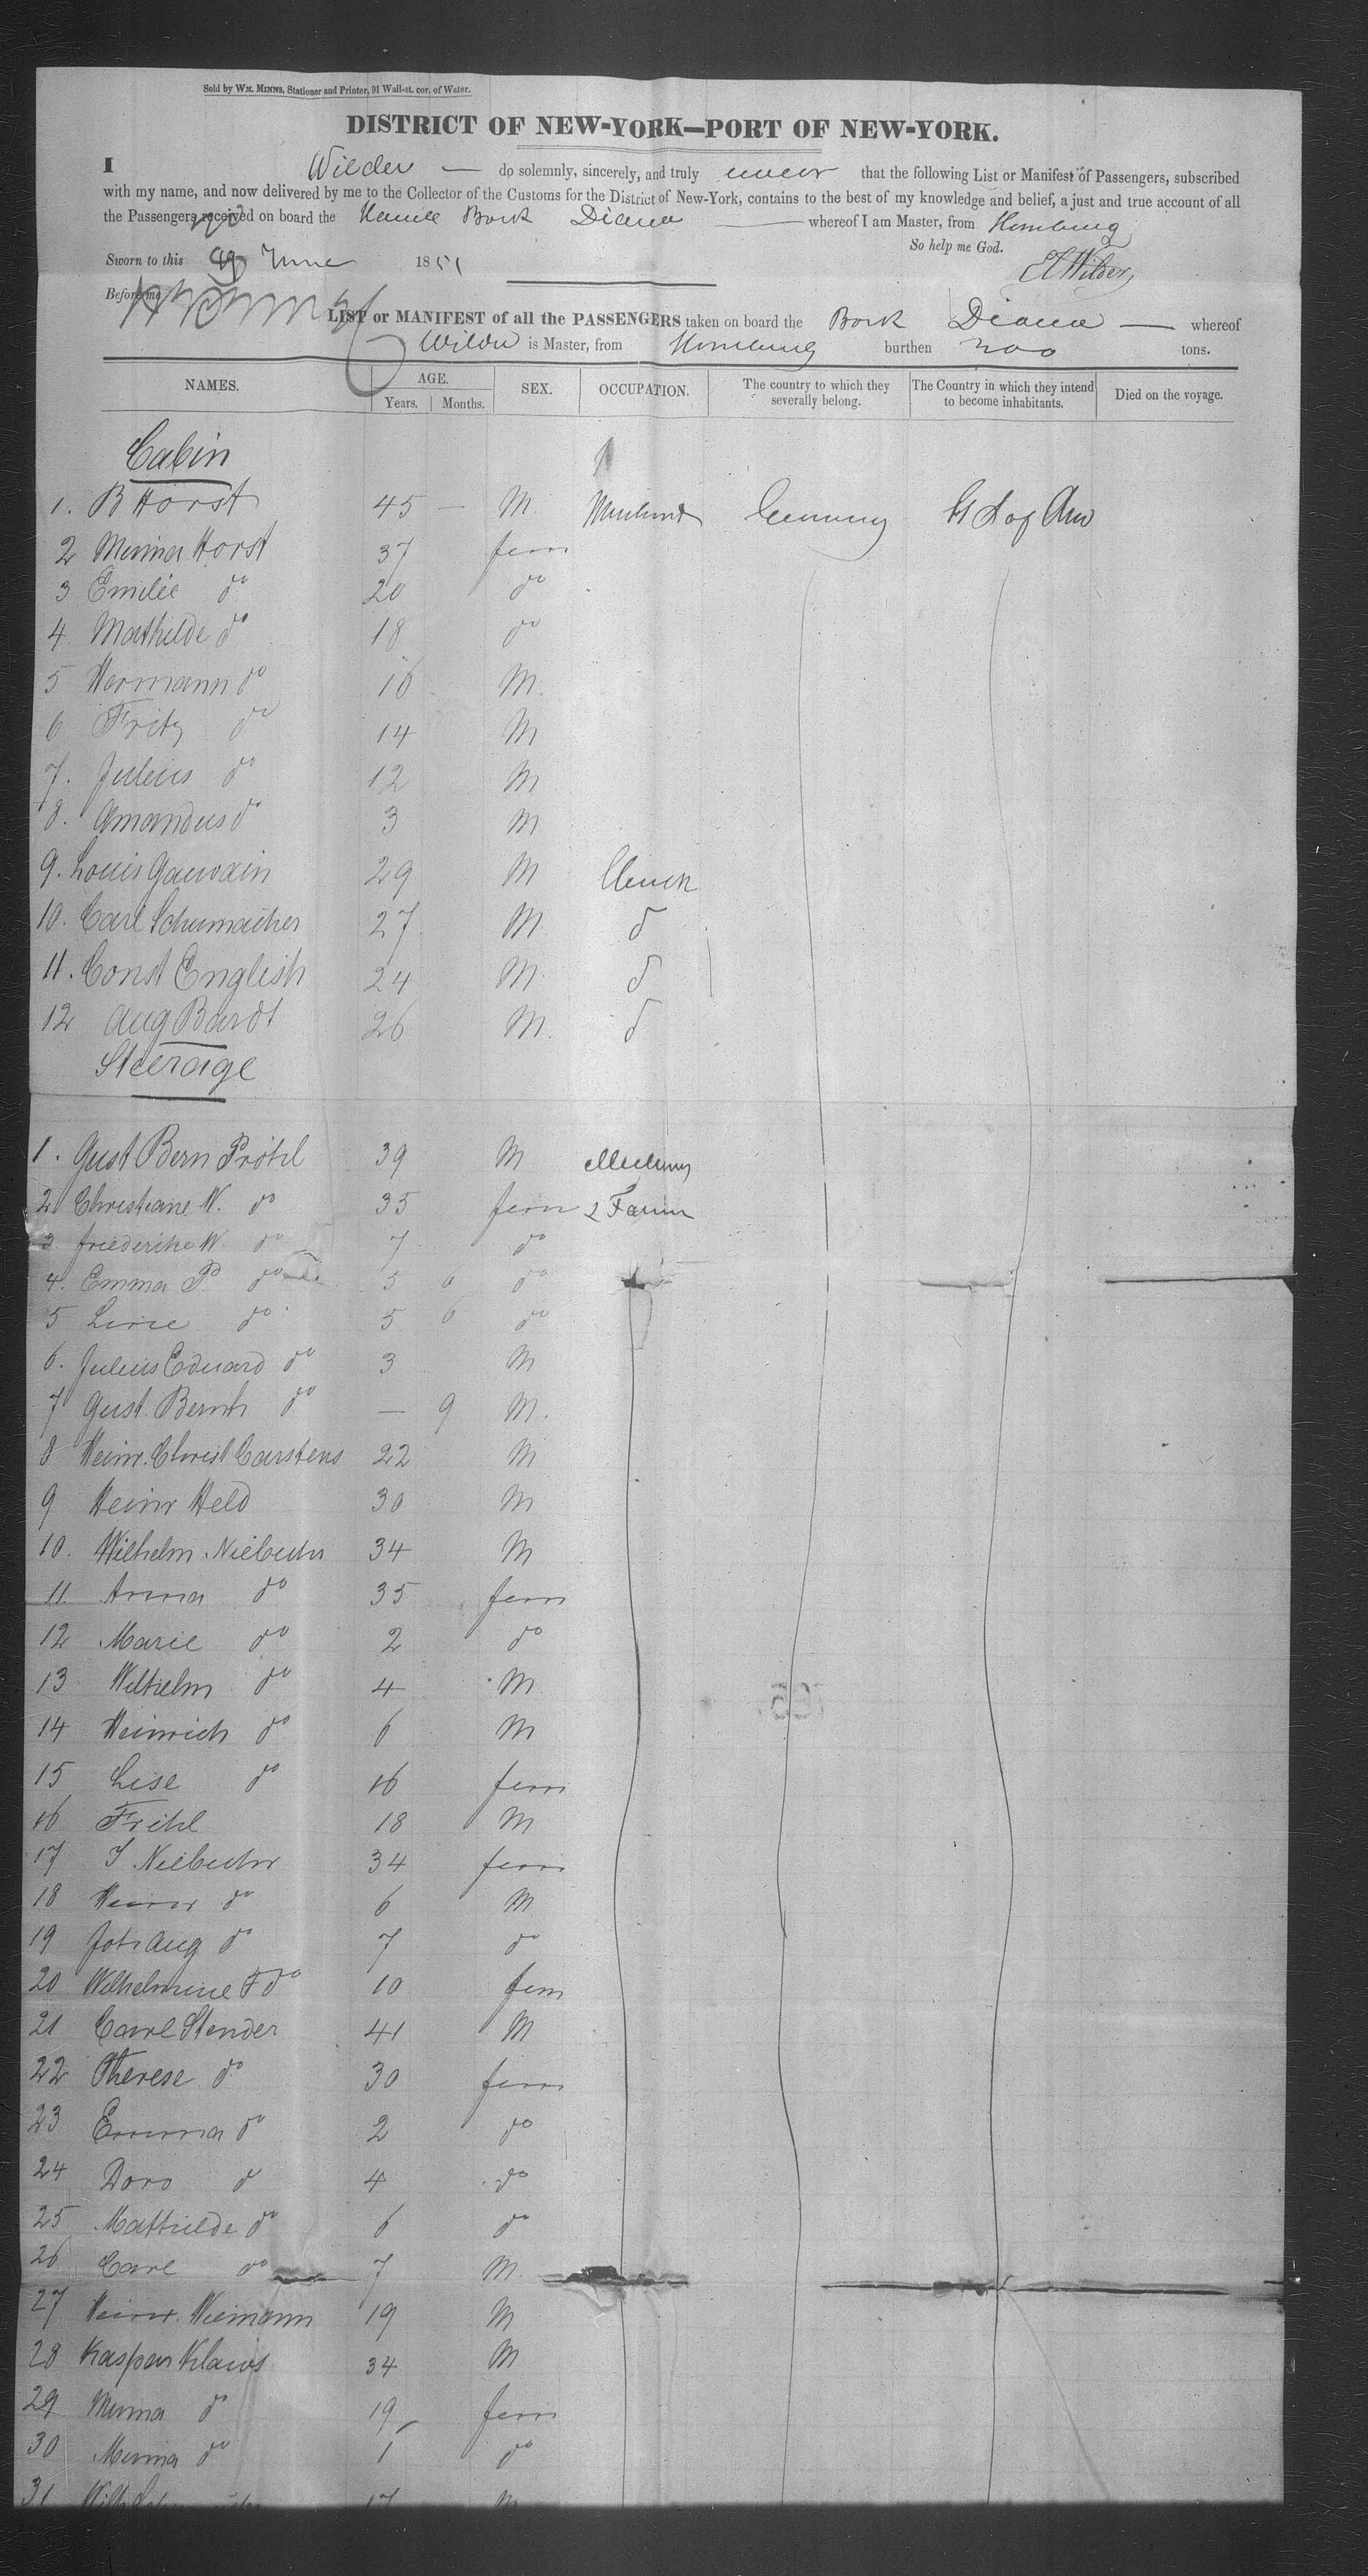 Sold by WM. MINNS, Stationer and Printer, 91 Wall-st. cor. of Water.
DISTRICT OF NEW-YORK—PORT OF NEW-YORK.
I Wilder — do solemnly, sincerely, and truly that the following List or Manifest of Passengers, subscribed
with my name, and now delivered by me to the Collector of the Customs for the District of New-York, contains to the best of my knowledge and belief, a just and true account of all
the Passengers received on board the Bark Diana — whereof I am Master, from Hamburg
So help me God.
Sworn to this June 1851
Wilder
Before me
LIST or MANIFEST of all the PASSENGERS taken on board the Bark Diana — whereof
Wilder is Master, from Hamburg burthen 200 tons.
NAMES. AGE. SEX. OCCUPATION. The country to which they severally belong. The Country in which they intend to become inhabitants. Died on the voyage.
Years. Months.
Cabin
1. B Horst 45 — M. Merchant Germany U S of Am
2 Minna Horst 37 fem
3 Emilie do 20 do
4 Mathilde do 18 do
5 Hermann do 16 M.
6 Fritz do 14 M
7. Julius do 12 M
8. Amandus do 3 M
9. Louis Gauvain 29 M Clerck
10. Carl Schumacher 27 M d
11. Const English 24 M. d
12 Aug Bardt 26 M. d
Steerage
1. Gust Bern Pröhl 39 M
2 Christiane W. do 35 fem & Farmr
3 friederike W. do 7 do
4. Emma P. do 5 6 do
5 Line do 5 6 do
6. Julius Eduard do 3 M
7 Gust. Bernh do — 9 M.
8 Heinr. Christ Carstens 22 M
9 Heinr Held 30 M
10. Wilhelm Niebuhr 34 M
11. Anna do 35 fem
12 Marie do 2 do
13 Wilhelm do 4 M
14 Heinrich do 6 M
15 Lise do 16 fem
16 18 M
17 Niebuhr 34 fem
18 Heinr do 6 M
19 Joh Aug do 7 do
20 Wilhelmine F do 10 fem
21 Carl Stender 41 M
22 Therese do 30 fem
23 Emma do 2 do
24 Doro d 4 do
25 Mathilde do 6 do
26 Carl do 7 M.
27 Heinr. Niemann 19 M
28 Kaspar Klaws 34 M
29 Minna do 19 fem
30 Minna do 1 do
31 17 M